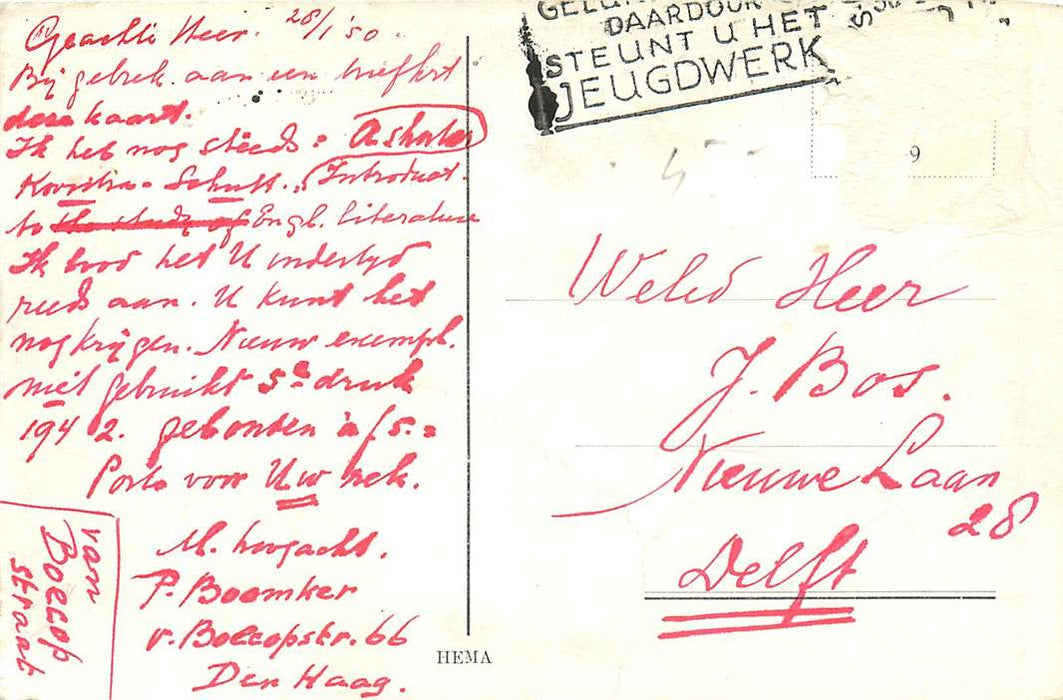 Geachte Heer. 28/1 '50.
Bij gebrek aan een briefkrt
deze kaart.
Ik heb nog steeds:
Kooistra - Schutt. "Introduct.
to the study of Engl. Literature
Ik bood het U indertijd
reeds aan. U kunt het
nog krijgen. Nieuw exempl.
niet gebruikt 5de druk
1942. gebonden à f 5.=
Porto voor Uw rek.
M. hoogacht.
P. Boomker
v. Boecopstr. 66
Den Haag.
van
Boecop
straat
DAARDOOR
STEUNT U HET
JEUGDWERK
9
WelEd Heer
J. Bos.
Nieuwe Laan
28
Delft
HEMA